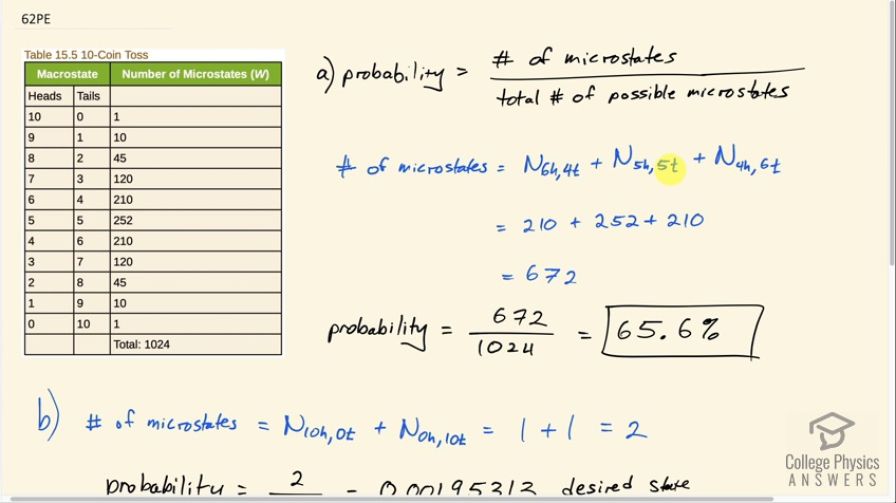 62PE
Table 15.5 10-Coin Toss
Macrostate Number of Microstates (W)
Heads Tails
10 0 1
9 1 10
8 2 45
7 3 120
6 4 210
5 5 252
4 6 210
3 7 120
2 8 45
1 9 10
0 10 1
Total: 1024
a) probability = # of microstates / total # of possible microstates
# of microstates = N6h,4t + N5h,5t + N4h,6t
= 210 + 252 + 210
= 672
probability = 672 / 1024 = 65.6%
b) # of microstates = N10h,0t + N0h,10t = 1 + 1 = 2
probability = 2 = 0.00195313 desired state
College Physics
ANSWERS